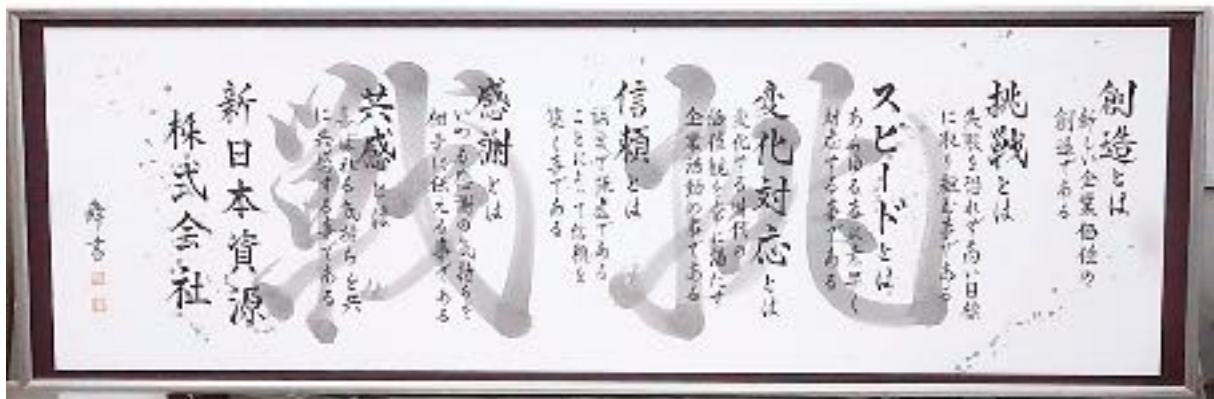 創造とは
新しい企業価値の
創造である
挑戦とは
失敗を恐れず高い目標
に取り組む事である
スピードとは
あらゆる事に素早く
対応する事である
変化対応とは
変化する時代の
価値観を常に満たす
企業活動の事である
信頼とは
誠実で謙虚である
ことによって信頼を
築く事である
感謝とは
いつも感謝の気持を
相手に伝える事である
共感とは
喜ばれる気持ちを共
に共感する事である
新日本資源
株式会社
挑戦